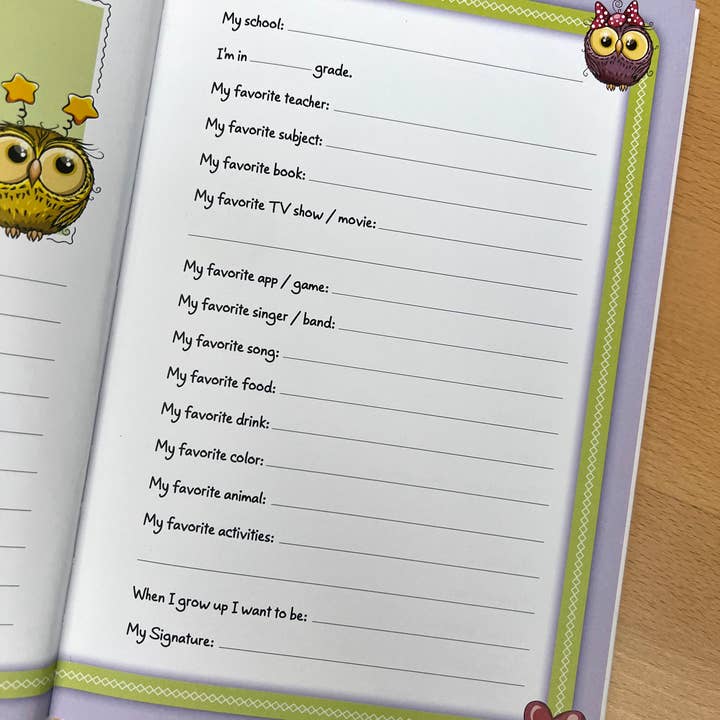 My school:
I'm in ________ grade.
My favorite teacher:
My favorite subject:
My favorite book:
My favorite TV show / movie:
My favorite app / game:
My favorite singer / band:
My favorite song:
My favorite food:
My favorite drink:
My favorite color:
My favorite animal:
My favorite activities:
When I grow up I want to be:
My Signature: